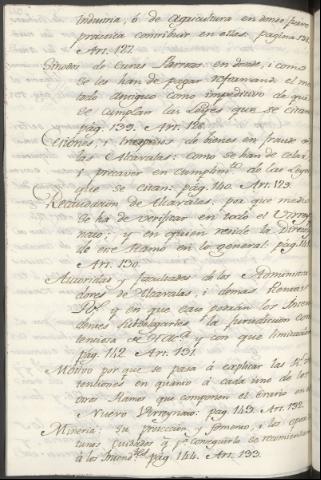 Industria, ó de Agricultura en donde fuere
practica contribuir en ellos. pagina 138.
Art. 127.
Sinodos de Curas Parrocos: en donde, i como
se les han de pagar reformando el me-
todo antiguo como impeditivo de que
se cumplan las Leyes que se citan
pag. 139. Art. 128.
Cesiones, i traspasos de bienes en fraude de
las Alcavalas: como se han de celar,
i precaver en cumplim.to de las Leyes
que se citan: pag. 140. Art. 129.
Recaudacion de Alcavalas: por que medios
se ha de verificar en todo el Virrey-
nato; y en quien reside la Direccion
de este Ramo en lo general: pag. 141.
Art. 130.
Autoridad y facultades de los Administra-
dores de Alcavalas, i demas Rentas
R.s, y en que caso podrán los Inten-
dentes subdelegarles la Jurisdiccion con-
tenciosa y con que limitacion
pag. 142. Art. 131.
Motivo por que se pasa á explicar las R.s In-
tenciones en quanto á cada uno de los
otros Ramos que componen el Erario en el
Nuevo Virreynato: pag. 143. Art. 132.
Mineria; su proteccion y fomento, i los opor-
tunos cuidados q.e p.a conseguirlo se recomiendan
á los Intend.tes pag. 144. Art. 133.